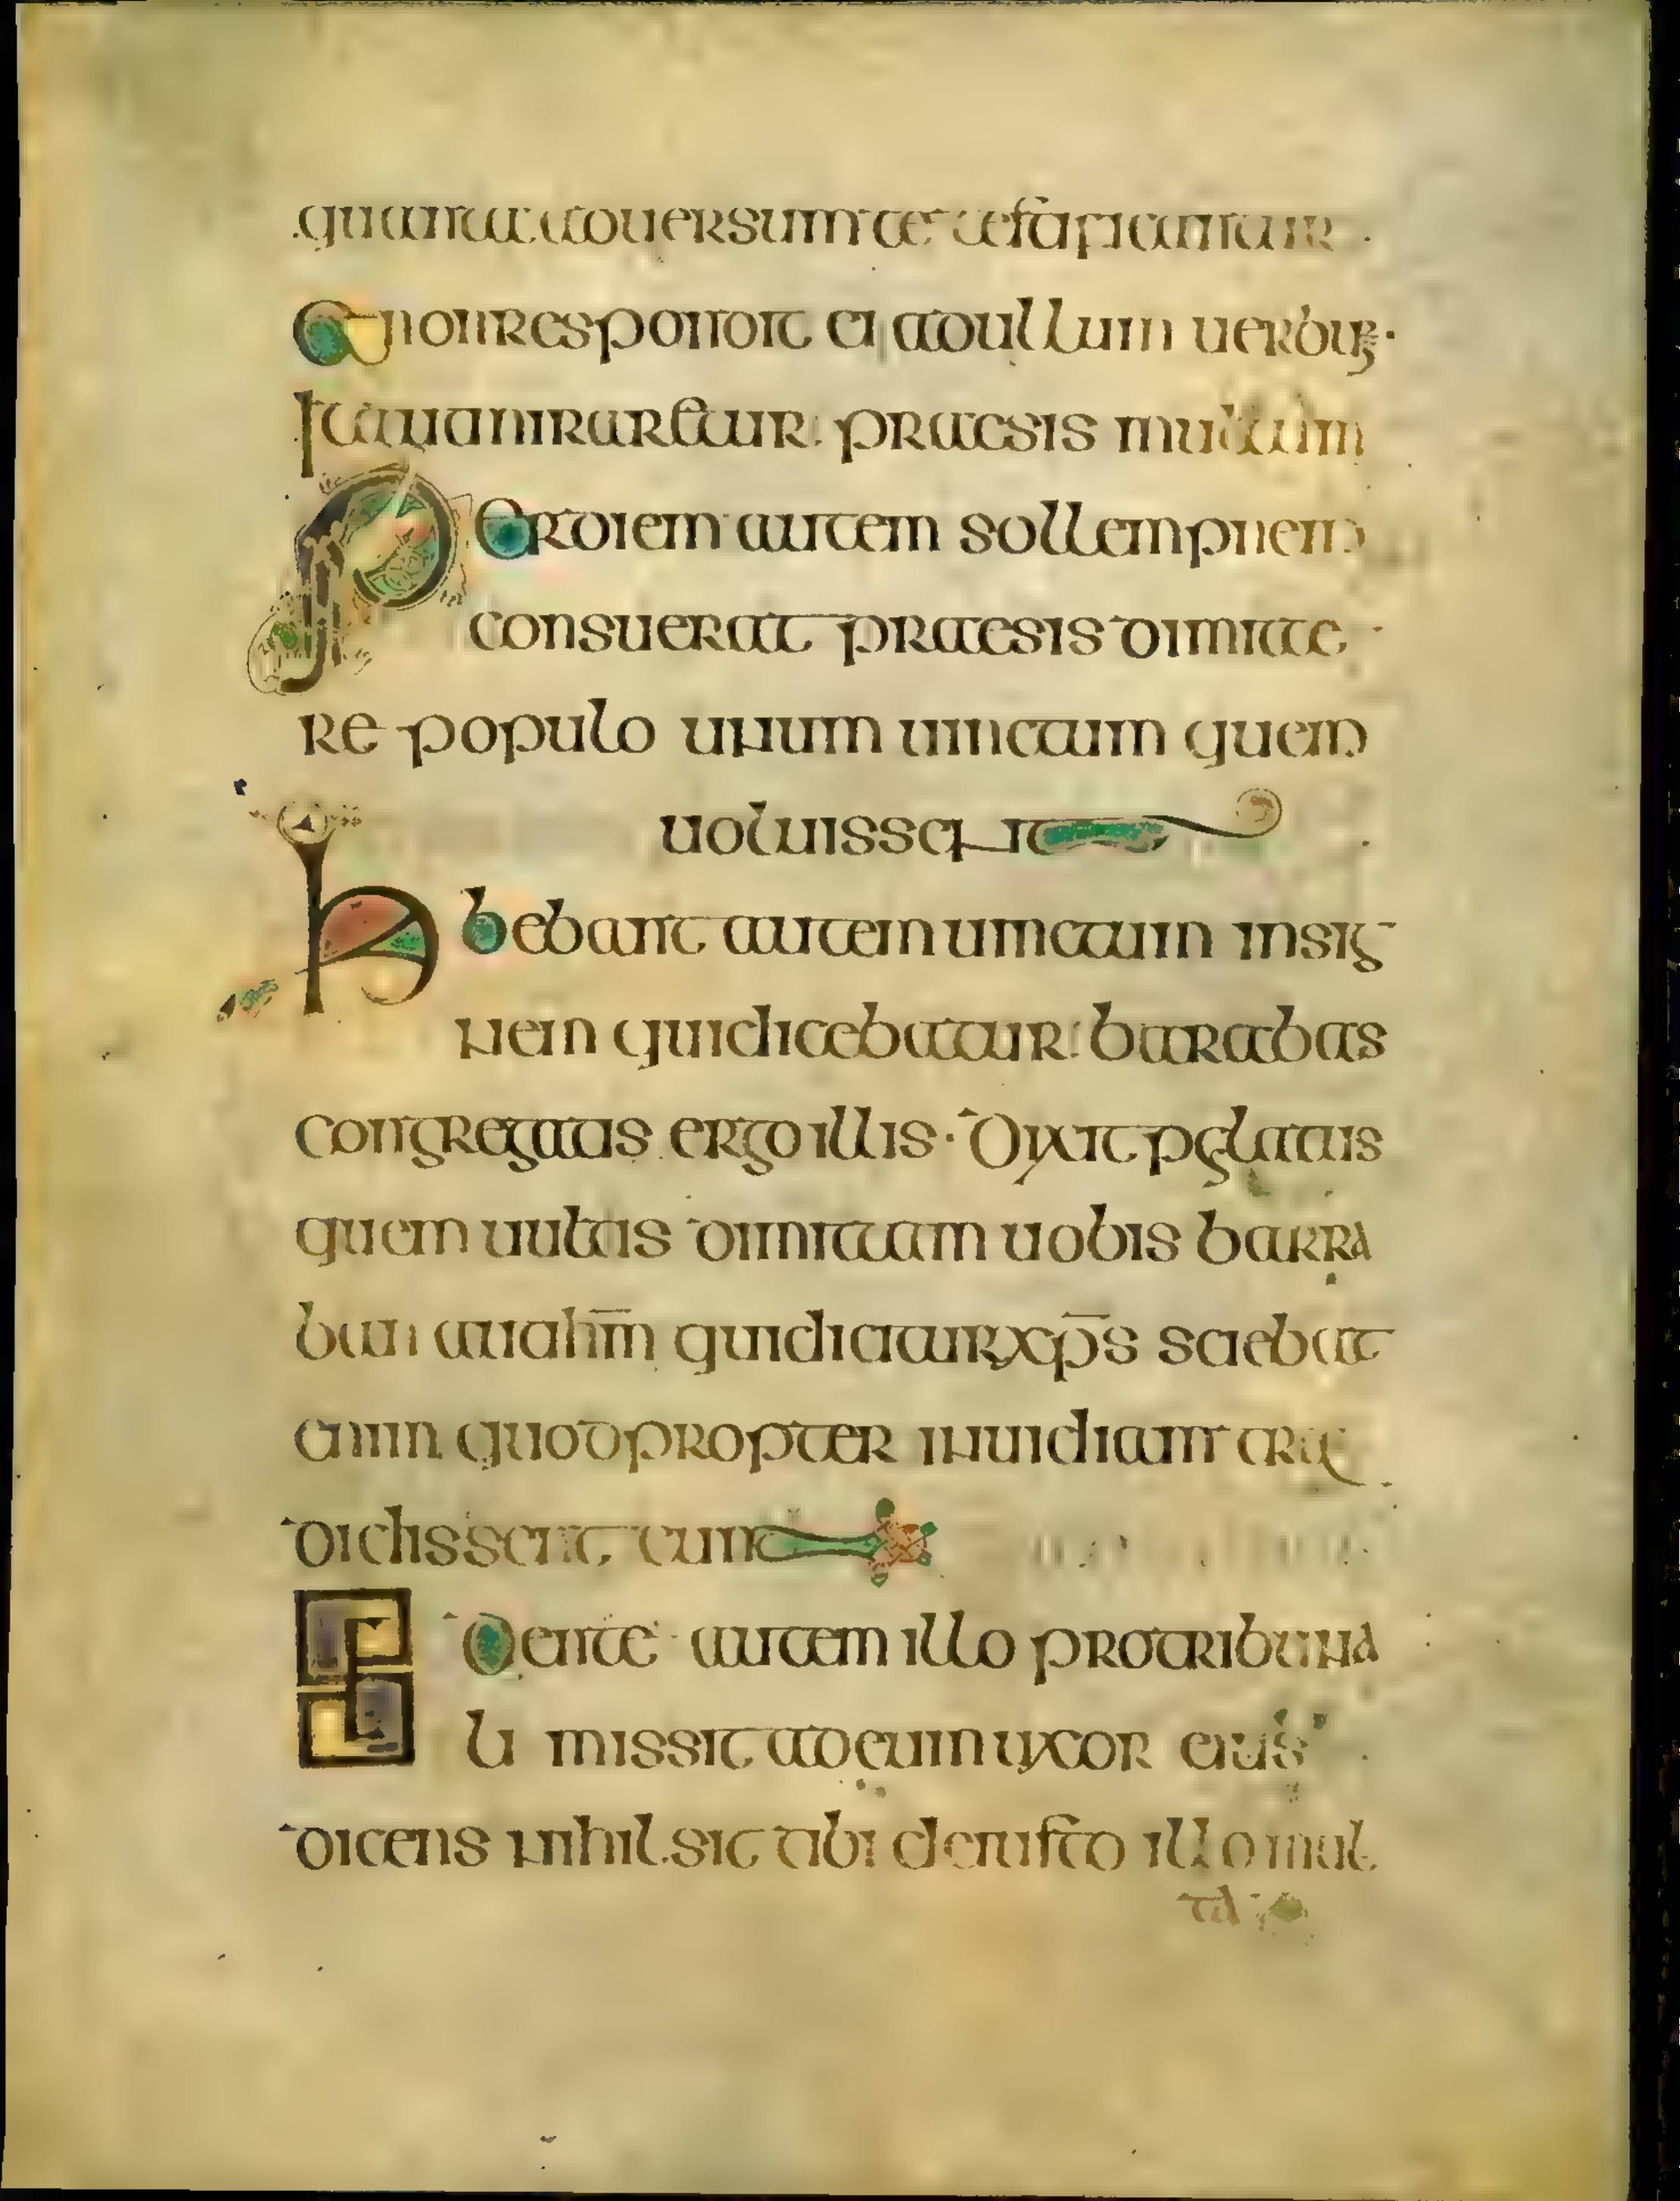 quanta aduersum te testificantur
Et non respondit ei ad ullum uerbum
ita ut miraretur praesis multum
Per diem autem sollempnem
consuerat praesis dimitte
re populo unum uinctum quem
uoluissent
Habebant autem uinctum insig
nem qui dicebatur barabas
congregatis ergo illis · Dixit pylatus
quem uultis dimittam uobis barra
ban an ihm qui dicitur xps sciebat
enim quod propter inuidiam tra
didissent eum
Sedente autem illo pro tribuna
li missit ad eum uxor eius
dicens nihil sit tibi et iusto illo mul
ta